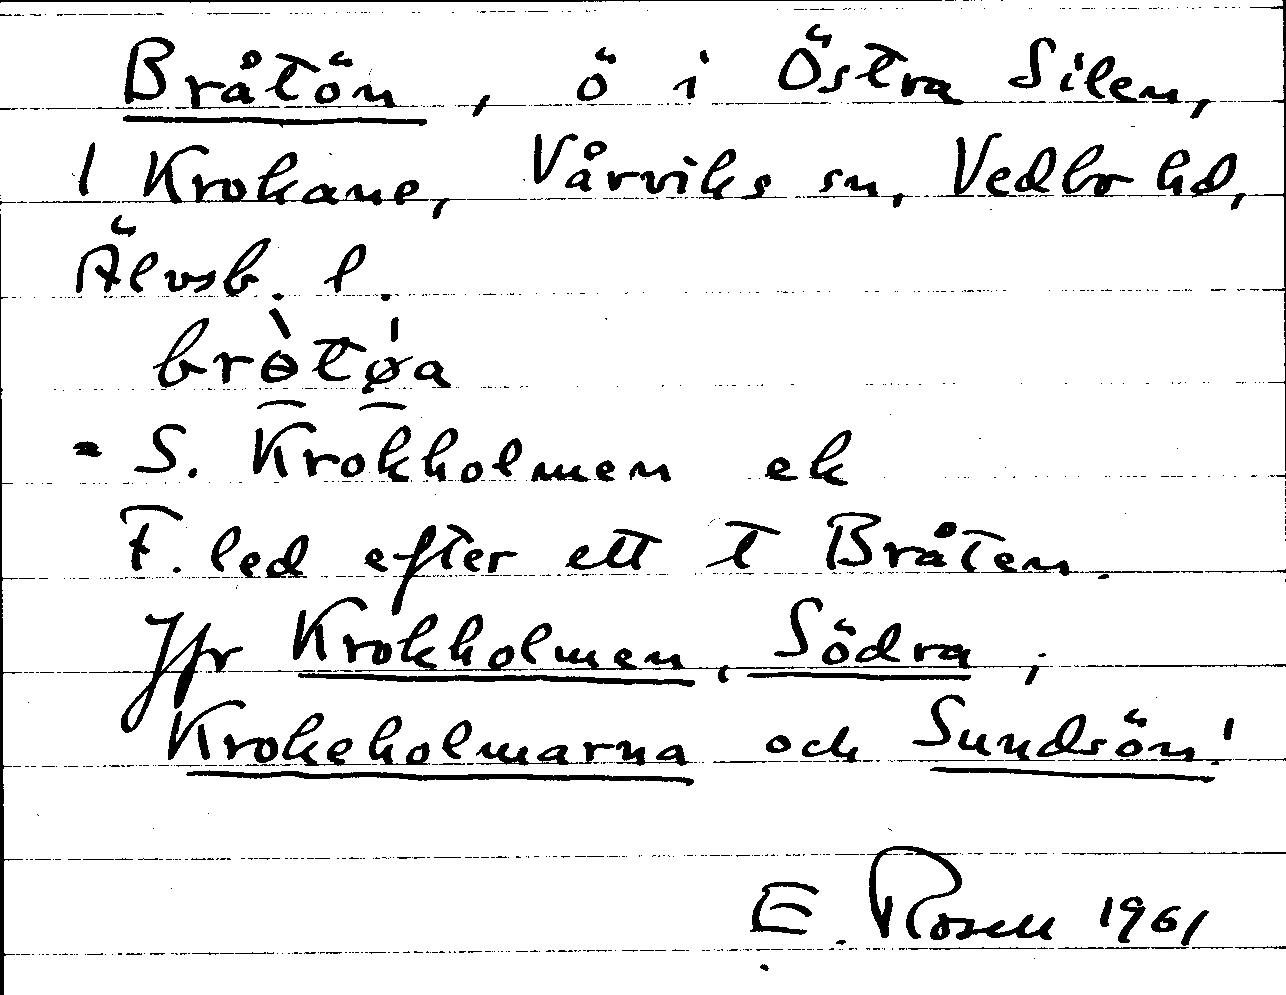 Bråtön, ö i Östra Silen,
1 Krokane, Vårviks sn, Vedbo hd,
Älvsb. l.
brɵ̀tø̍a
= S. Krokholmen ek
F. led efter ett t Bråten.
Jfr Krokholmen, Södra,
Krokeholmarna och Sundsön!
E. Rosell 1961